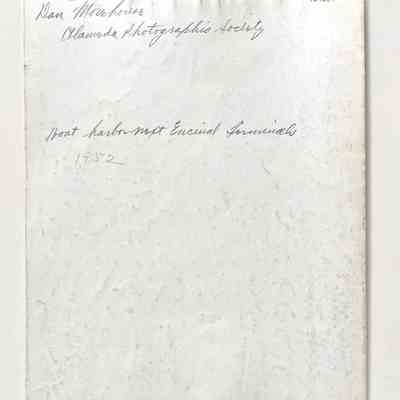 Dan Morehouse
Alameda Photographic Society
Boat harbor next Encinal Terminals
1952